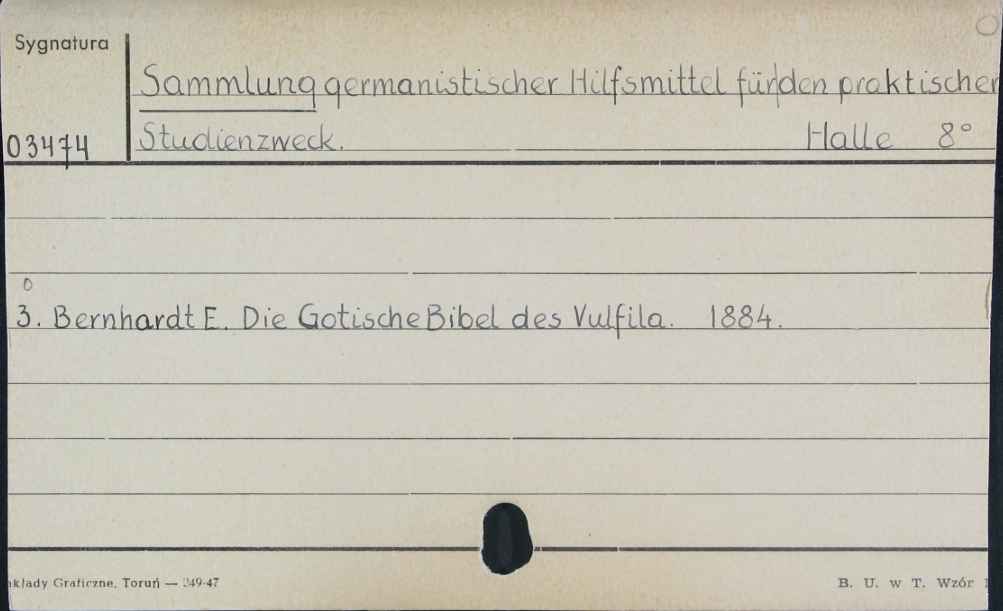 Sygnatura
Sammlung germanistischer Hilfsmittel für den praktischen
03474
Studienzweck. Halle 8°
3. Bernhardt E. Die Gotische Bibel des Vulfila. 1884.
kłady Graficzne, Toruń — 349-47
B. U. w T. Wzór